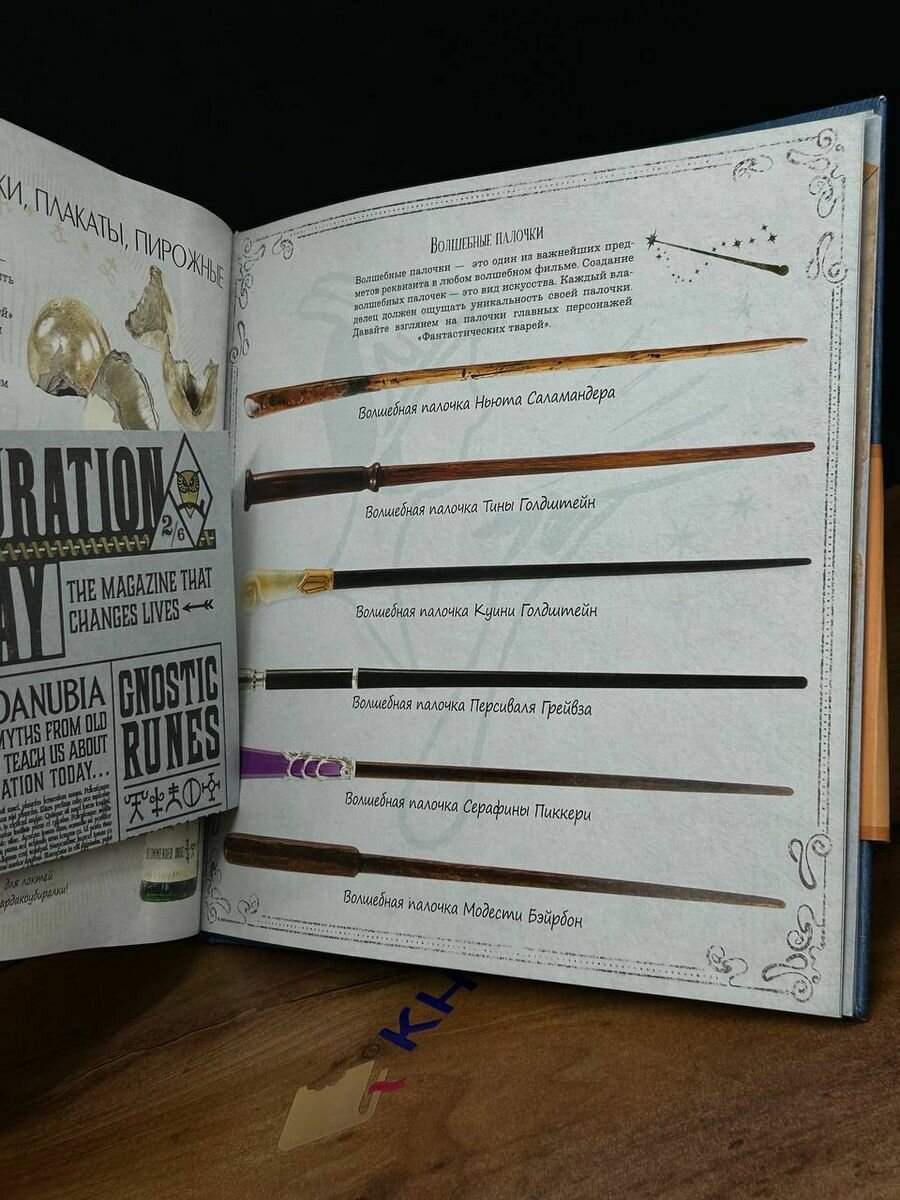 КИ, ПЛАКАТЫ, ПИРОЖНЫЕ
URATION
2/6
AY
THE MAGAZINE THAT
CHANGES LIVES
DANUBIA
MYTHS FROM OLD
TEACH US ABOUT
ATION TODAY...
GNOSTIC
RUNES
RECOMMENDED DOSE
для локтей
ардакоубиралки!
ВОЛШЕБНЫЕ ПАЛОЧКИ
Волшебные палочки — это один из важнейших пред-
метов реквизита в любом волшебном фильме. Создание
волшебных палочек — это вид искусства. Каждый вла-
делец должен ощущать уникальность своей палочки.
Давайте взглянем на палочки главных персонажей
«Фантастических тварей».
Волшебная палочка Ньюта Саламандера
Волшебная палочка Тины Голдштейн
Волшебная палочка Куини Голдштейн
Волшебная палочка Персиваля Грейвза
Волшебная палочка Серафины Пиккери
Волшебная палочка Модести Бэйрбон
КН